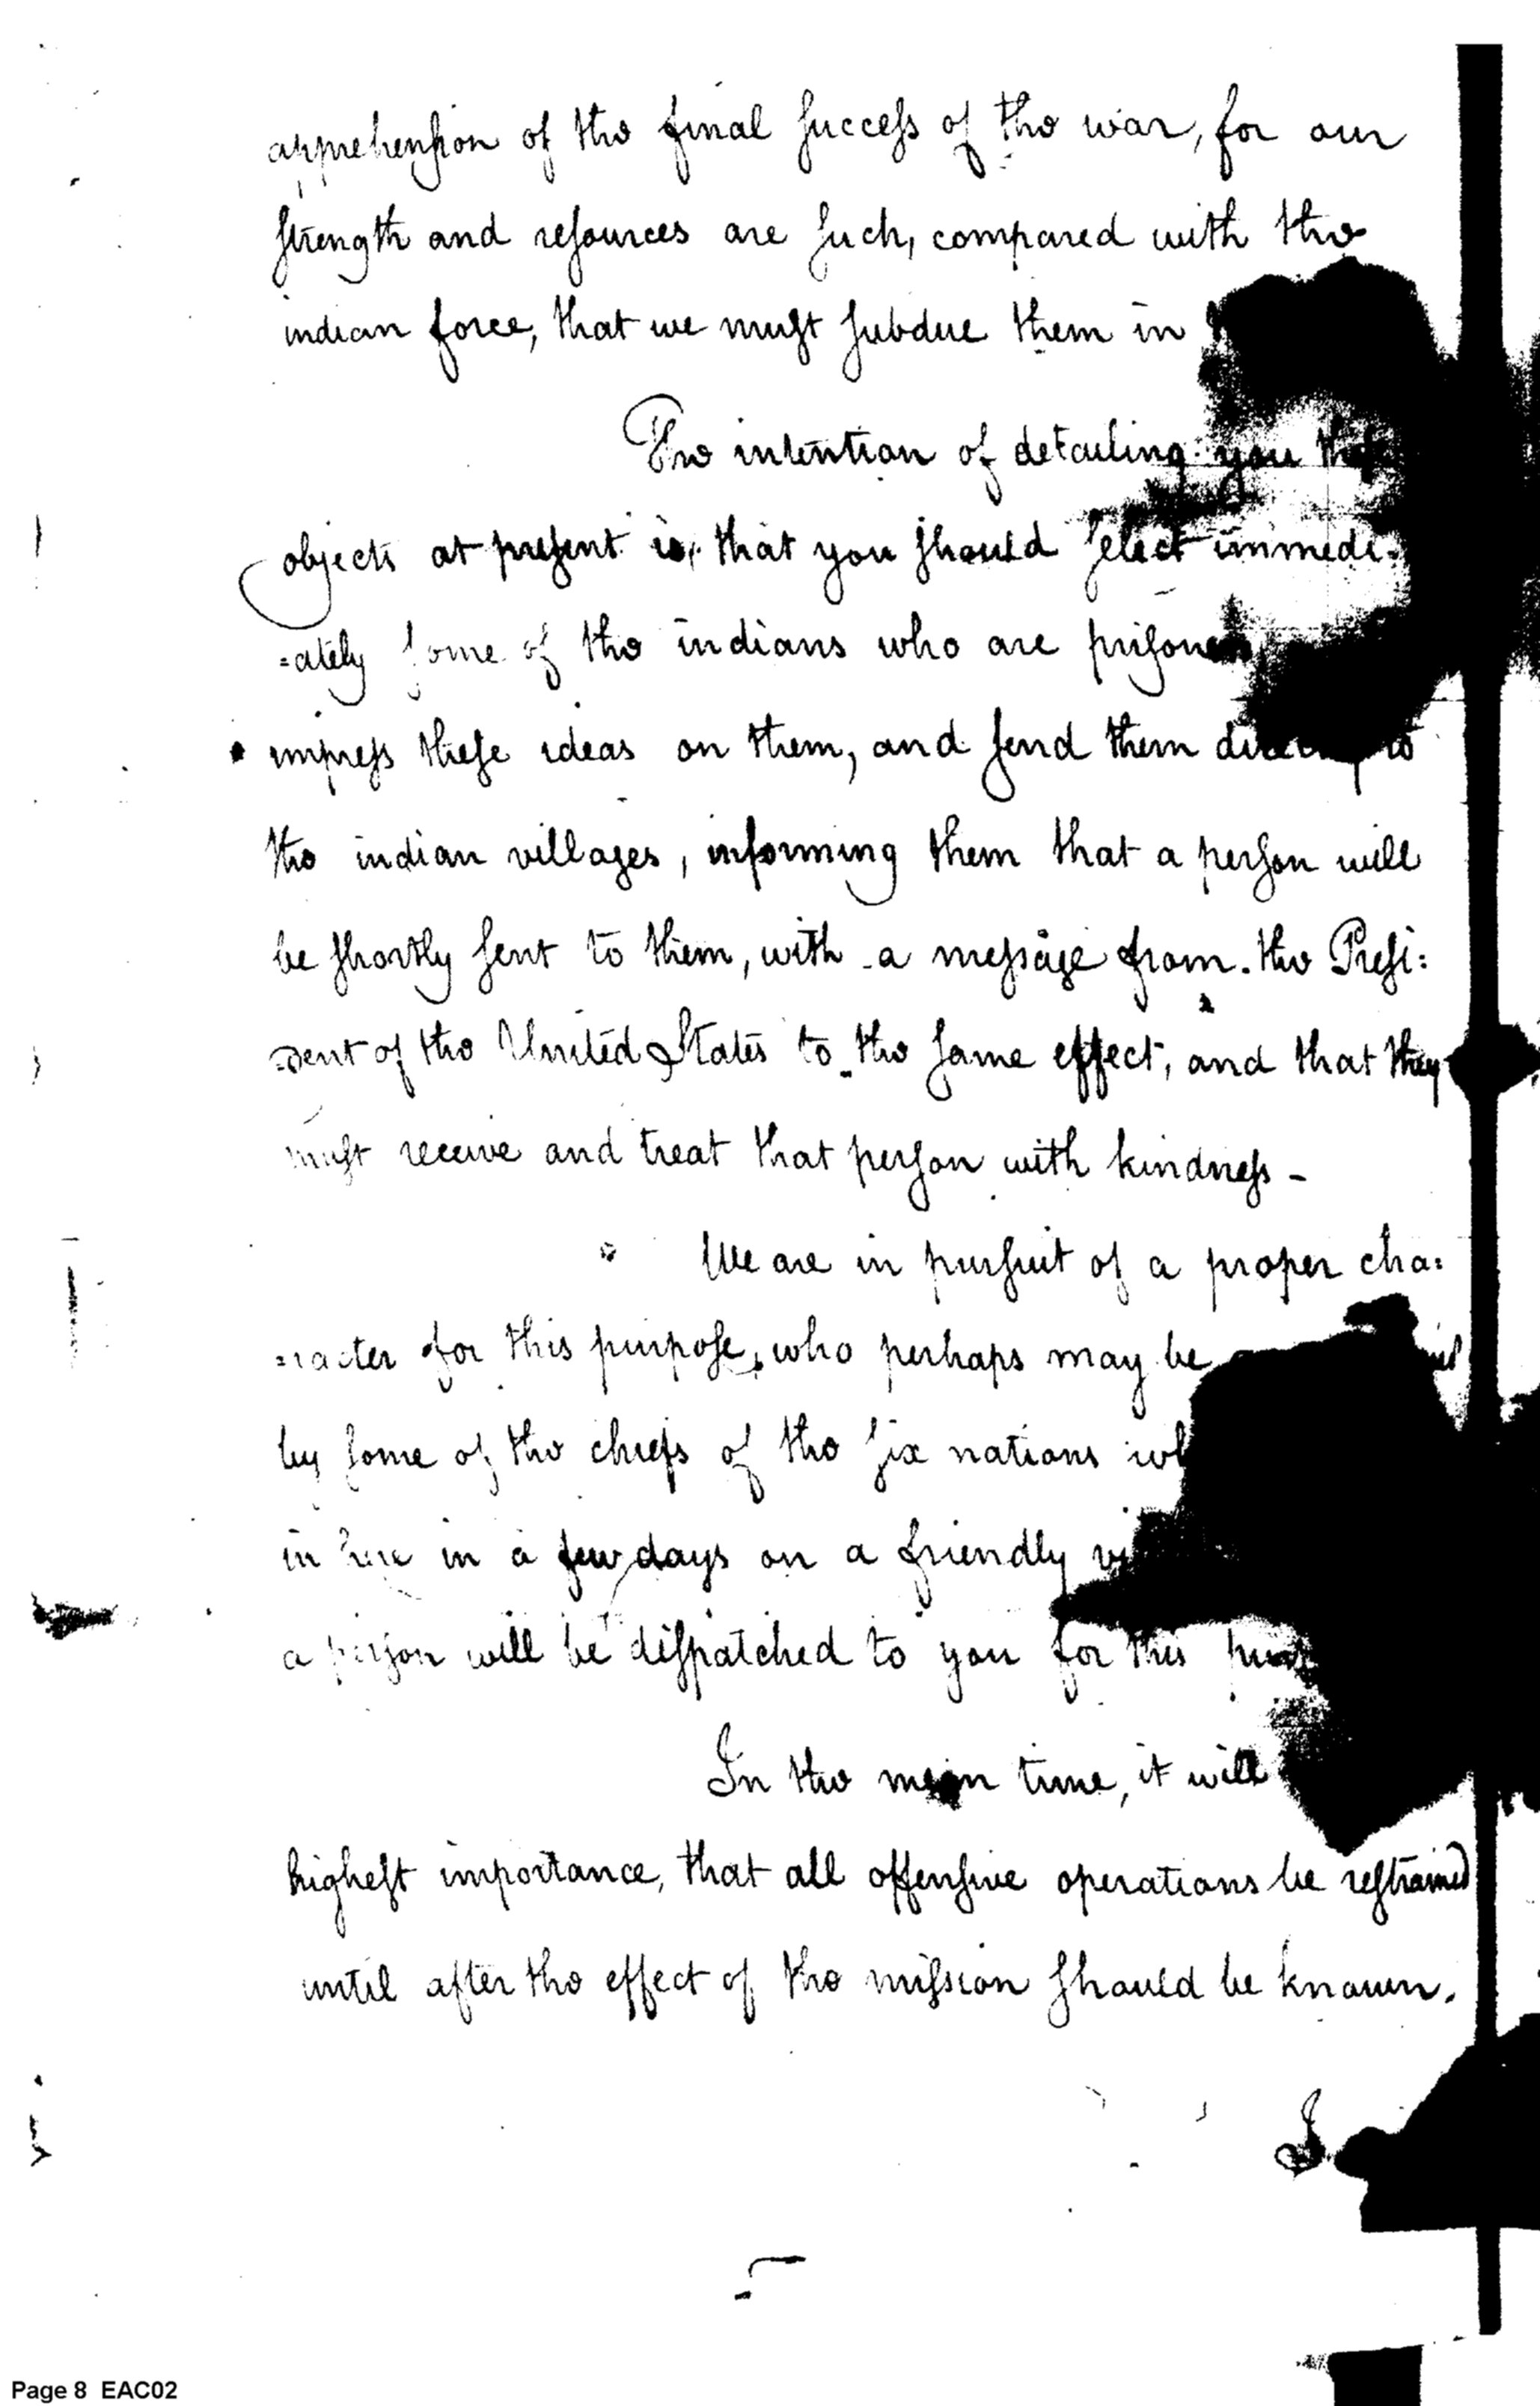 apprehension of the final success of the war, for our
strength and resources are such, compared with the
indian force, that we must subdue them in
The intention of detailing you these
objects at present is, that you should select immedi-
=ately some of the indians who are prisoners
impress these ideas on them, and send them directly to
the indian villages, informing them that a person will
be shortly sent to them, with a message from the Presi:
=dent of the United States to the same effect, and that they
must receive and treat that person with kindness -
We are in pursuit of a proper cha:
=racter for this purpose, who perhaps may be
by some of the chiefs of the six nations
in here in a few days on a friendly
a person will be dispatched to you for this
In the mean time, it will
highest importance, that all offensive operations be restrained
until after the effect of the mission should be known.
I
Page 8 EAC02